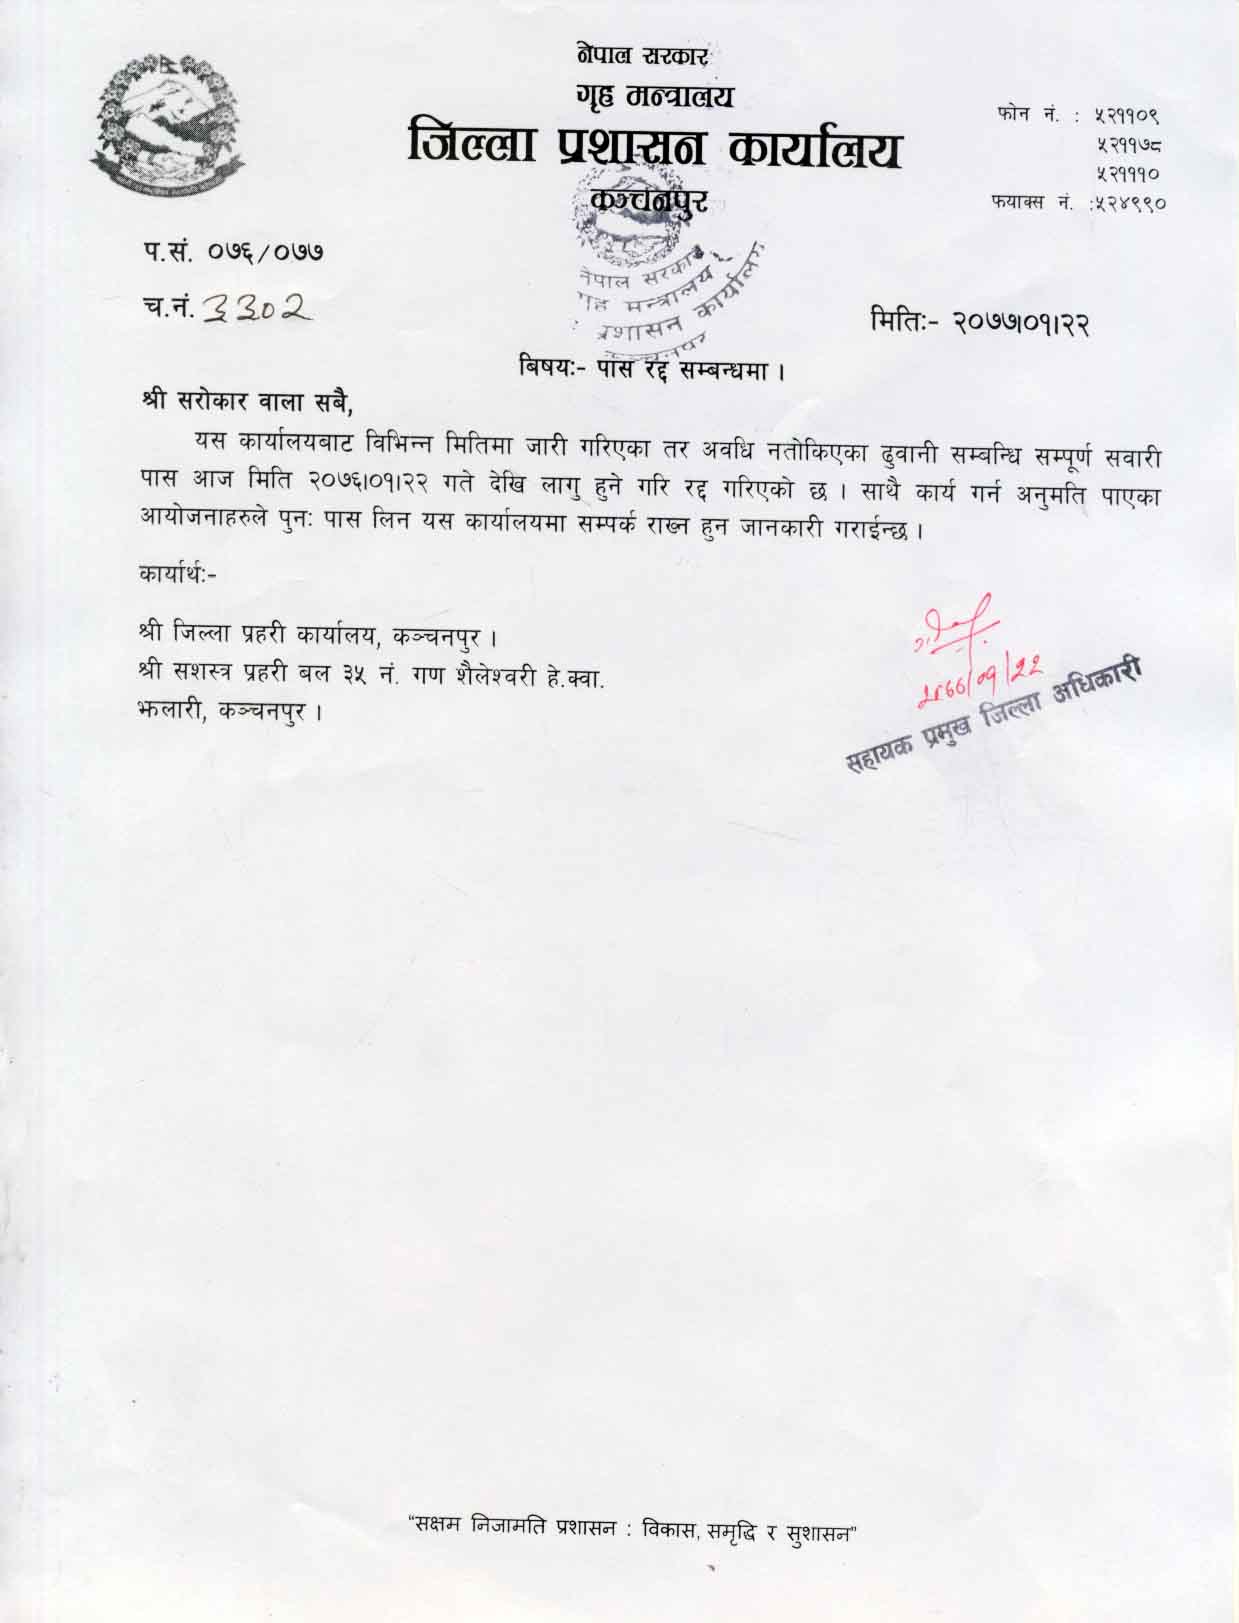 नेपाल सरकार
गृह मन्त्रालय
जिल्ला प्रशासन कार्यालय
कञ्चनपुर
फोन नं. : ५२११०९
५२११७८
५२१११०
फयाक्स नं. :५२४९९०
प.सं. ०७६/०७७
च.नं. ३३०२
नेपाल सरकार
गृह मन्त्रालय
प्रशासन कार्यालय
कञ्चनपुर
मितिः- २०७७।०१।२२
बिषयः- पास रद्द सम्बन्धमा ।
श्री सरोकार वाला सबै,
यस कार्यालयबाट विभिन्न मितिमा जारी गरिएका तर अवधि नतोकिएका ढुवानी सम्बन्धि सम्पूर्ण सवारी
पास आज मिति २०७६।०१।२२ गते देखि लागु हुने गरि रद्द गरिएको छ । साथै कार्य गर्न अनुमति पाएका
आयोजनाहरुले पुनः पास लिन यस कार्यालयमा सम्पर्क राख्न हुन जानकारी गराईन्छ ।
कार्यार्थः-
श्री जिल्ला प्रहरी कार्यालय, कञ्चनपुर ।
श्री सशस्त्र प्रहरी बल ३५ नं. गण शैलेश्वरी हे.क्वा.
झलारी, कञ्चनपुर ।
२०७७/०१/२२
सहायक प्रमुख जिल्ला अधिकारी
“सक्षम निजामति प्रशासन : विकास, समृद्धि र सुशासन”